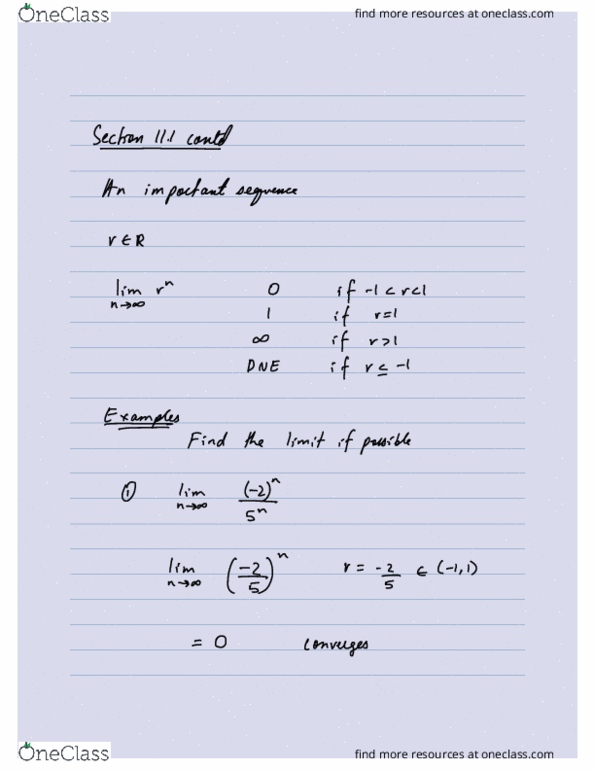 OneClass
find more resources at oneclass.com
Section 11.1 contd
An important sequence
r ∈ R
lim n→∞ r^n 0 if -1 < r < 1
1 if r=1
∞ if r>1
DNE if r ≤ -1
Examples
Find the limit if possible
① lim n→∞ (-2)^n / 5^n
lim n→∞ (-2/5)^n r = -2/5 ∈ (-1,1)
= 0 converges
OneClass
find more resources at oneclass.com